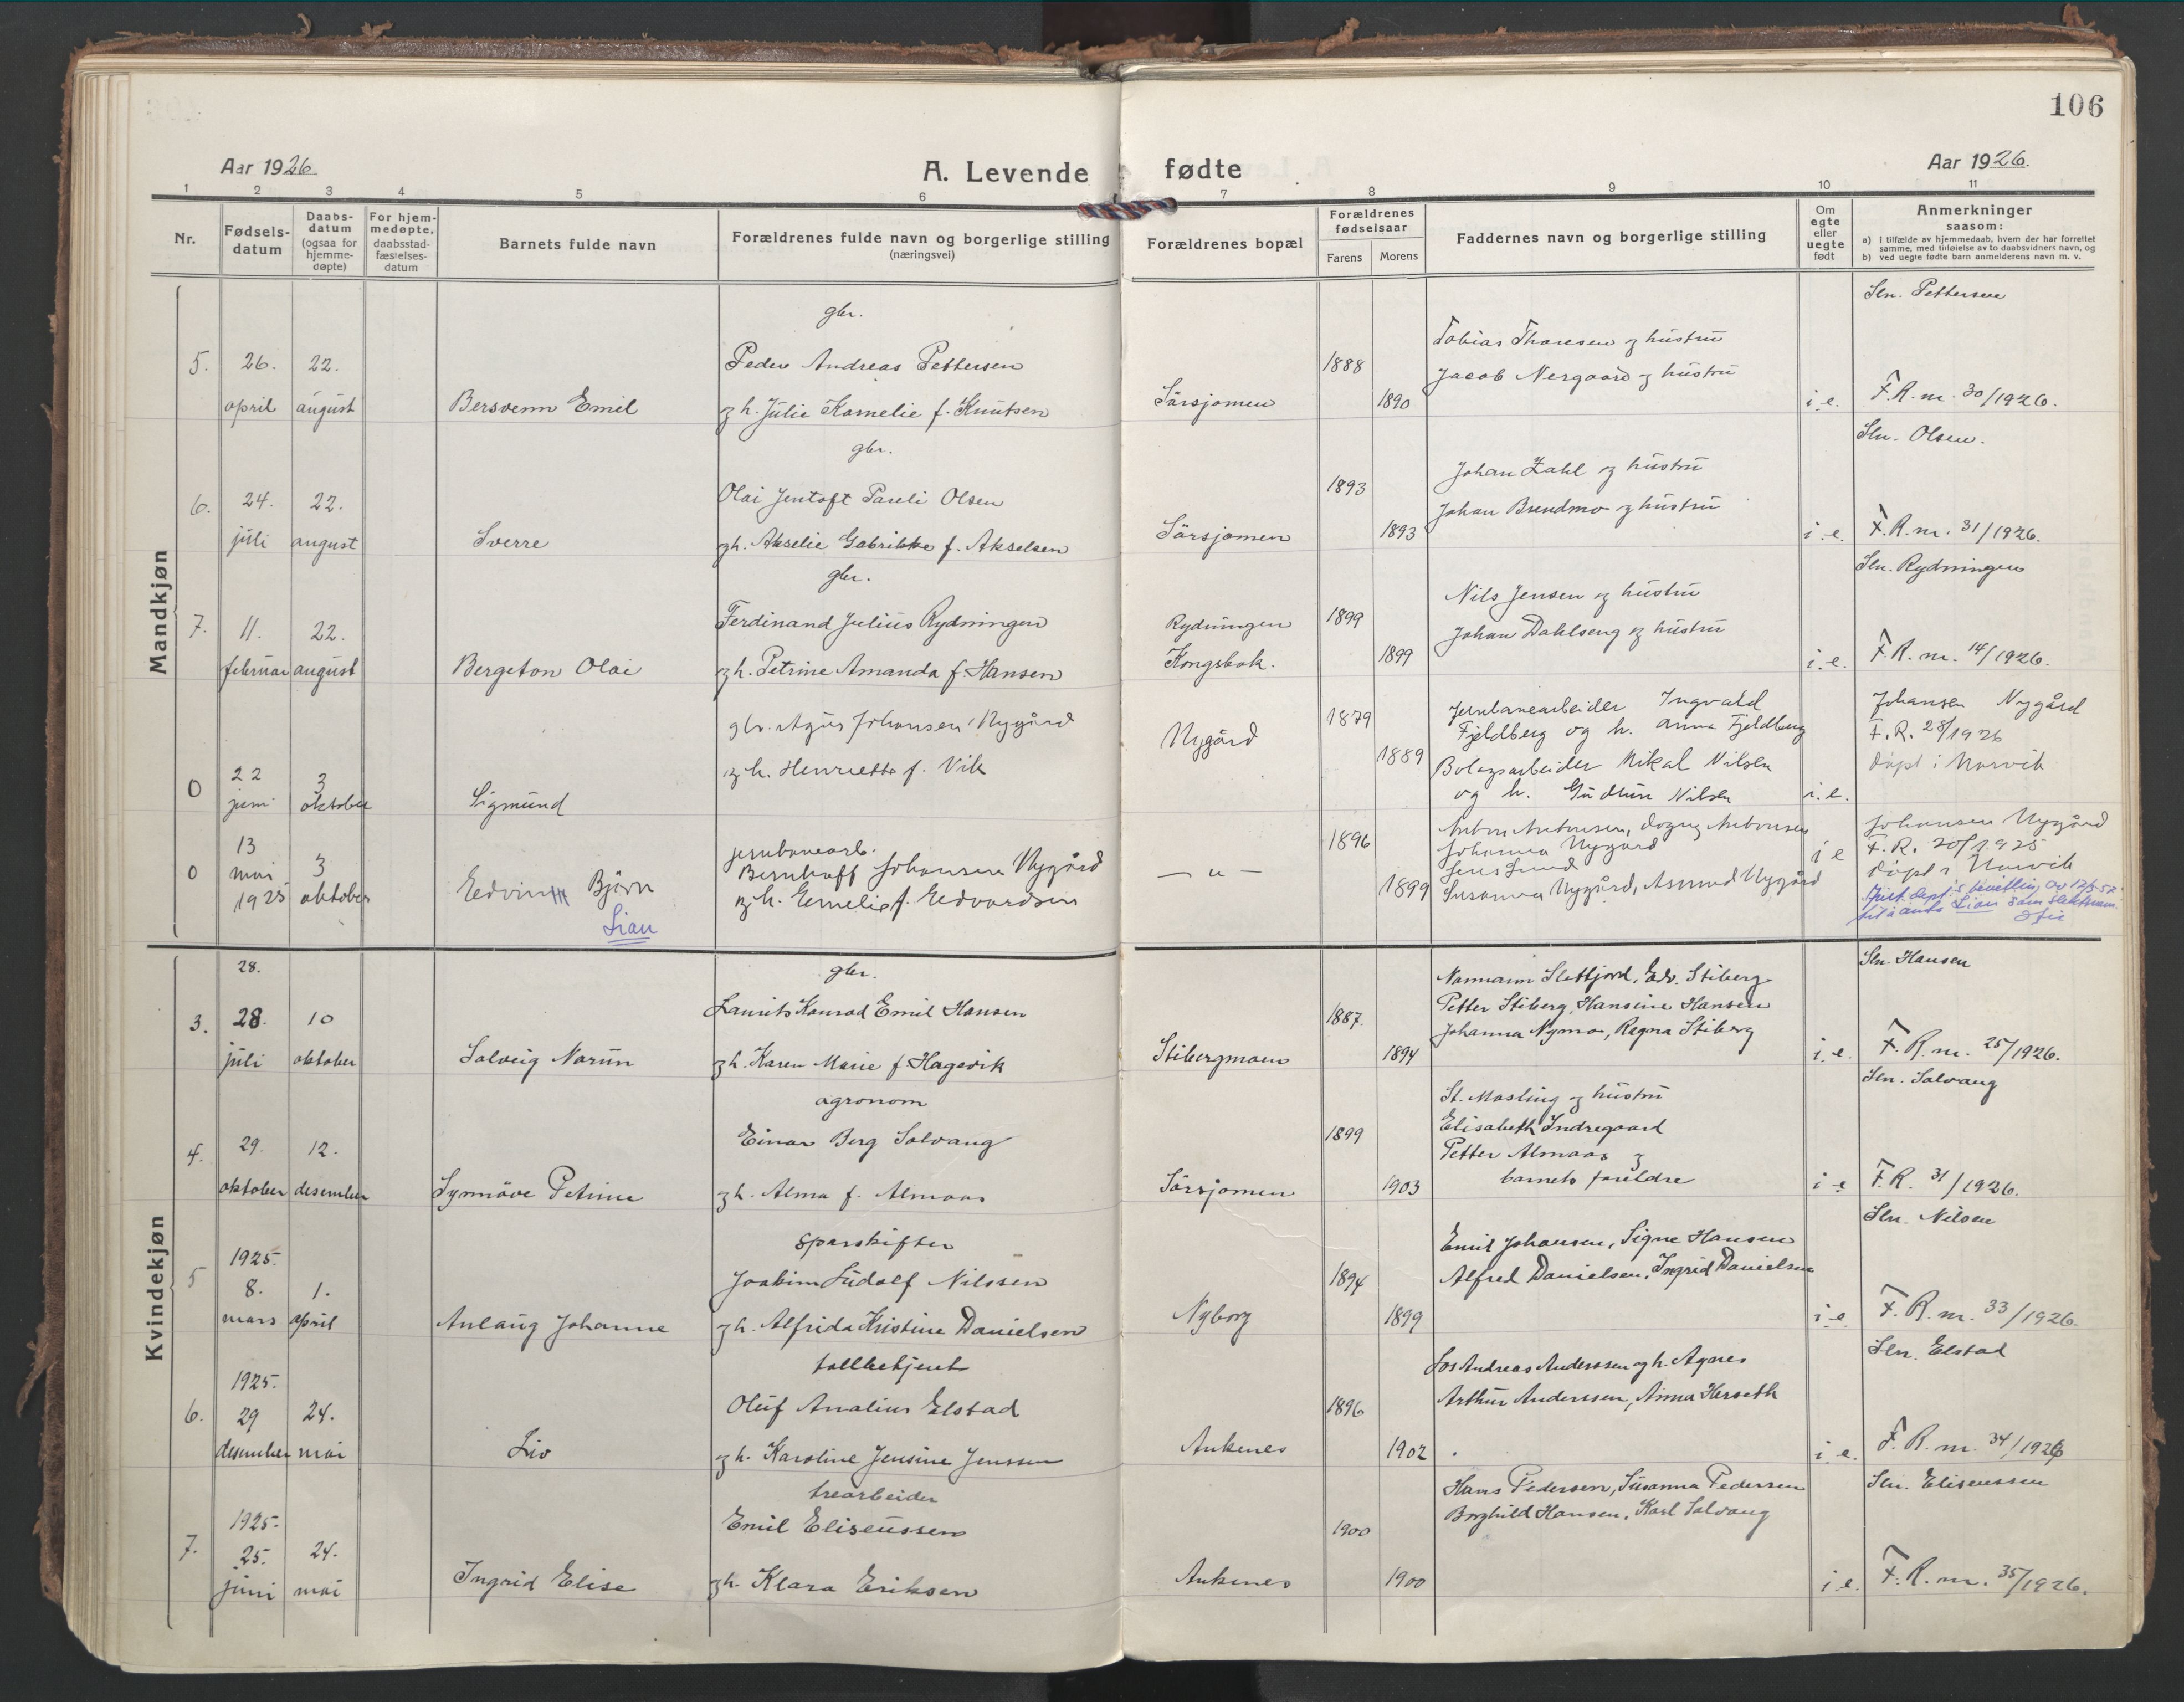 106
Aar 1926.
A. Levende fødte
Aar 1926.
1 2 3 4 5 6 7 8 9 10 11
Nr.
Fødsels-
datum
Daabs-
datum
(ogsaa for
hjemme-
døpte)
For hjem-
medøpte,
daabsstad-
fæstelses-
datum
Barnets fulde navn
Forældrenes fulde navn og borgerlige stilling
(næringsvei)
Forældrenes bopæl
Forældrenes
fødselsaar
Farens Morens
Faddernes navn og borgerlige stilling
Om
egte
eller
uegte
født
Anmerkninger
saasom:
a) i tilfælde av hjemmedaab, hvem der har forrettet
samme, med tilføielse av to daabsvidners navn, og
b) ved uegte fødte barn anmelderens navn m. v.
Mandkjøn
5.
26.
april
22.
august
Bersvenn Emil
gbr.
Peder Andreas Pettersen
og h. Julie Kornelie f. Knutsen
Sørsjomen
1888
1890
Tobias Thoresen og hustru
Jacob Nergaard og hustru
i. e.
Sln. Pettersen
F.R. nr. 30/1926.
6.
24.
juli
22.
august
Sverre
gbr.
Olai Jentoft Pareli Olsen
og h. Akselie Gabrikke f. Akselsen
Sørsjomen
1893
1893
Johan Zahl og hustru
Johan Brendmo og hustru
i. e.
Sln. Olsen.
F.R. nr. 31/1926.
7.
11.
februar
22.
august
Bergeton Olai
gbr.
Ferdinand Julius Rydningen
og h. Petrine Amanda f. Hansen
Rydningen
Kongsbak.
1899
1899
Nils Jensen og hustru
Johan Dahlseng og hustru
i. e.
Sln. Rydningen
F.R. nr. 14/1926.
0
22
juni
3
oktober
Sigmund
gbr. Agus Johansen Nygård
og h. Henriette f. Vik
Nygård
1879
1889
Jernbanearbeider Ingvald
Fjeldberg og h. Anna Fjeldberg
Bolagsarbeider Mikal Nilsen
og h. Gudrun Nilsen
i. e.
Johansen Nygård
F.R. 28/1926
døpt i Narvik
0
13
mai
1925
3
oktober
Edvin Bjørn
Lian
jernbanearb.
Bernhoff Johansen Nygård
og h. Emelie f. Edvardsen
— " —
1896
1899
Anton Antonsen, Dagny Antonsen
Johanna Nygård
Jens Lund
Susanna Nygård, Asmund Nygård
i e
Johansen Nygård
F.R. 20/1925
døpt i Narvik
Just. dept.'s bevilling av 12/3-52
til å anta Lian som slektsnavn.
Kvindekjøn
3.
28.
28.
juli
10
oktober
Solveig Norun
gbr.
Laurits Konrad Emil Hansen
og h. Karen Marie f. Hagevik
Stibergmoen
1887.
1894
Normann Slettjord, Edv. Stiberg
Petter Stiberg, Hansine Hansen
Johanna Nymo, Ragna Stiberg
i. e.
Sln. Hansen
F. R. nr. 25/1926.
4.
29.
oktober
12.
desember
Synnöve Petrine
agronom
Einar Berg Solvang
og h. Alma f. Almaas
Sørsjomen
1899
1903
St. Mosling og hustru
Elisabeth Indregaard
Petter Almaas og
barnets foreldre
i e
Sln. Solvang
F.R. 31/1926.
5
1925.
8.
mars
1.
april
Anlaug Johanne
sporskifter
Joakim Ludolf Nilssen
og h. Alfrida Kristine Danielsen
Nyborg
1894
1899
Emil Johansen, Signe Hansen
Alfred Danielsen, Ingrid Danielsen
i. e.
Sln. Nilsen
F. R. nr. 33/1926.
6.
1925.
29
desember
24.
mai
Liv
tollbetjent
Oluf Analius Elstad
og h. Karoline Jensine Jenssen
Ankenes
1896
1902
Los Andreas Anderssen og h. Agnes
Arthur Anderssen, Anna Herseth
i. e.
Sln. Elstad
F. R. nr. 34/1926
7.
1925.
25.
juni
24.
mai
Ingrid Elise
trearbeider
Emil Eliseussen
og h. Klara Eriksen
Ankenes
1900
1900
Hans Pedersen, Susanna Pedersen
Borghild Hansen, Karl Solvang
i. e.
Sln. Eliseussen
F. R. nr. 35/1926.